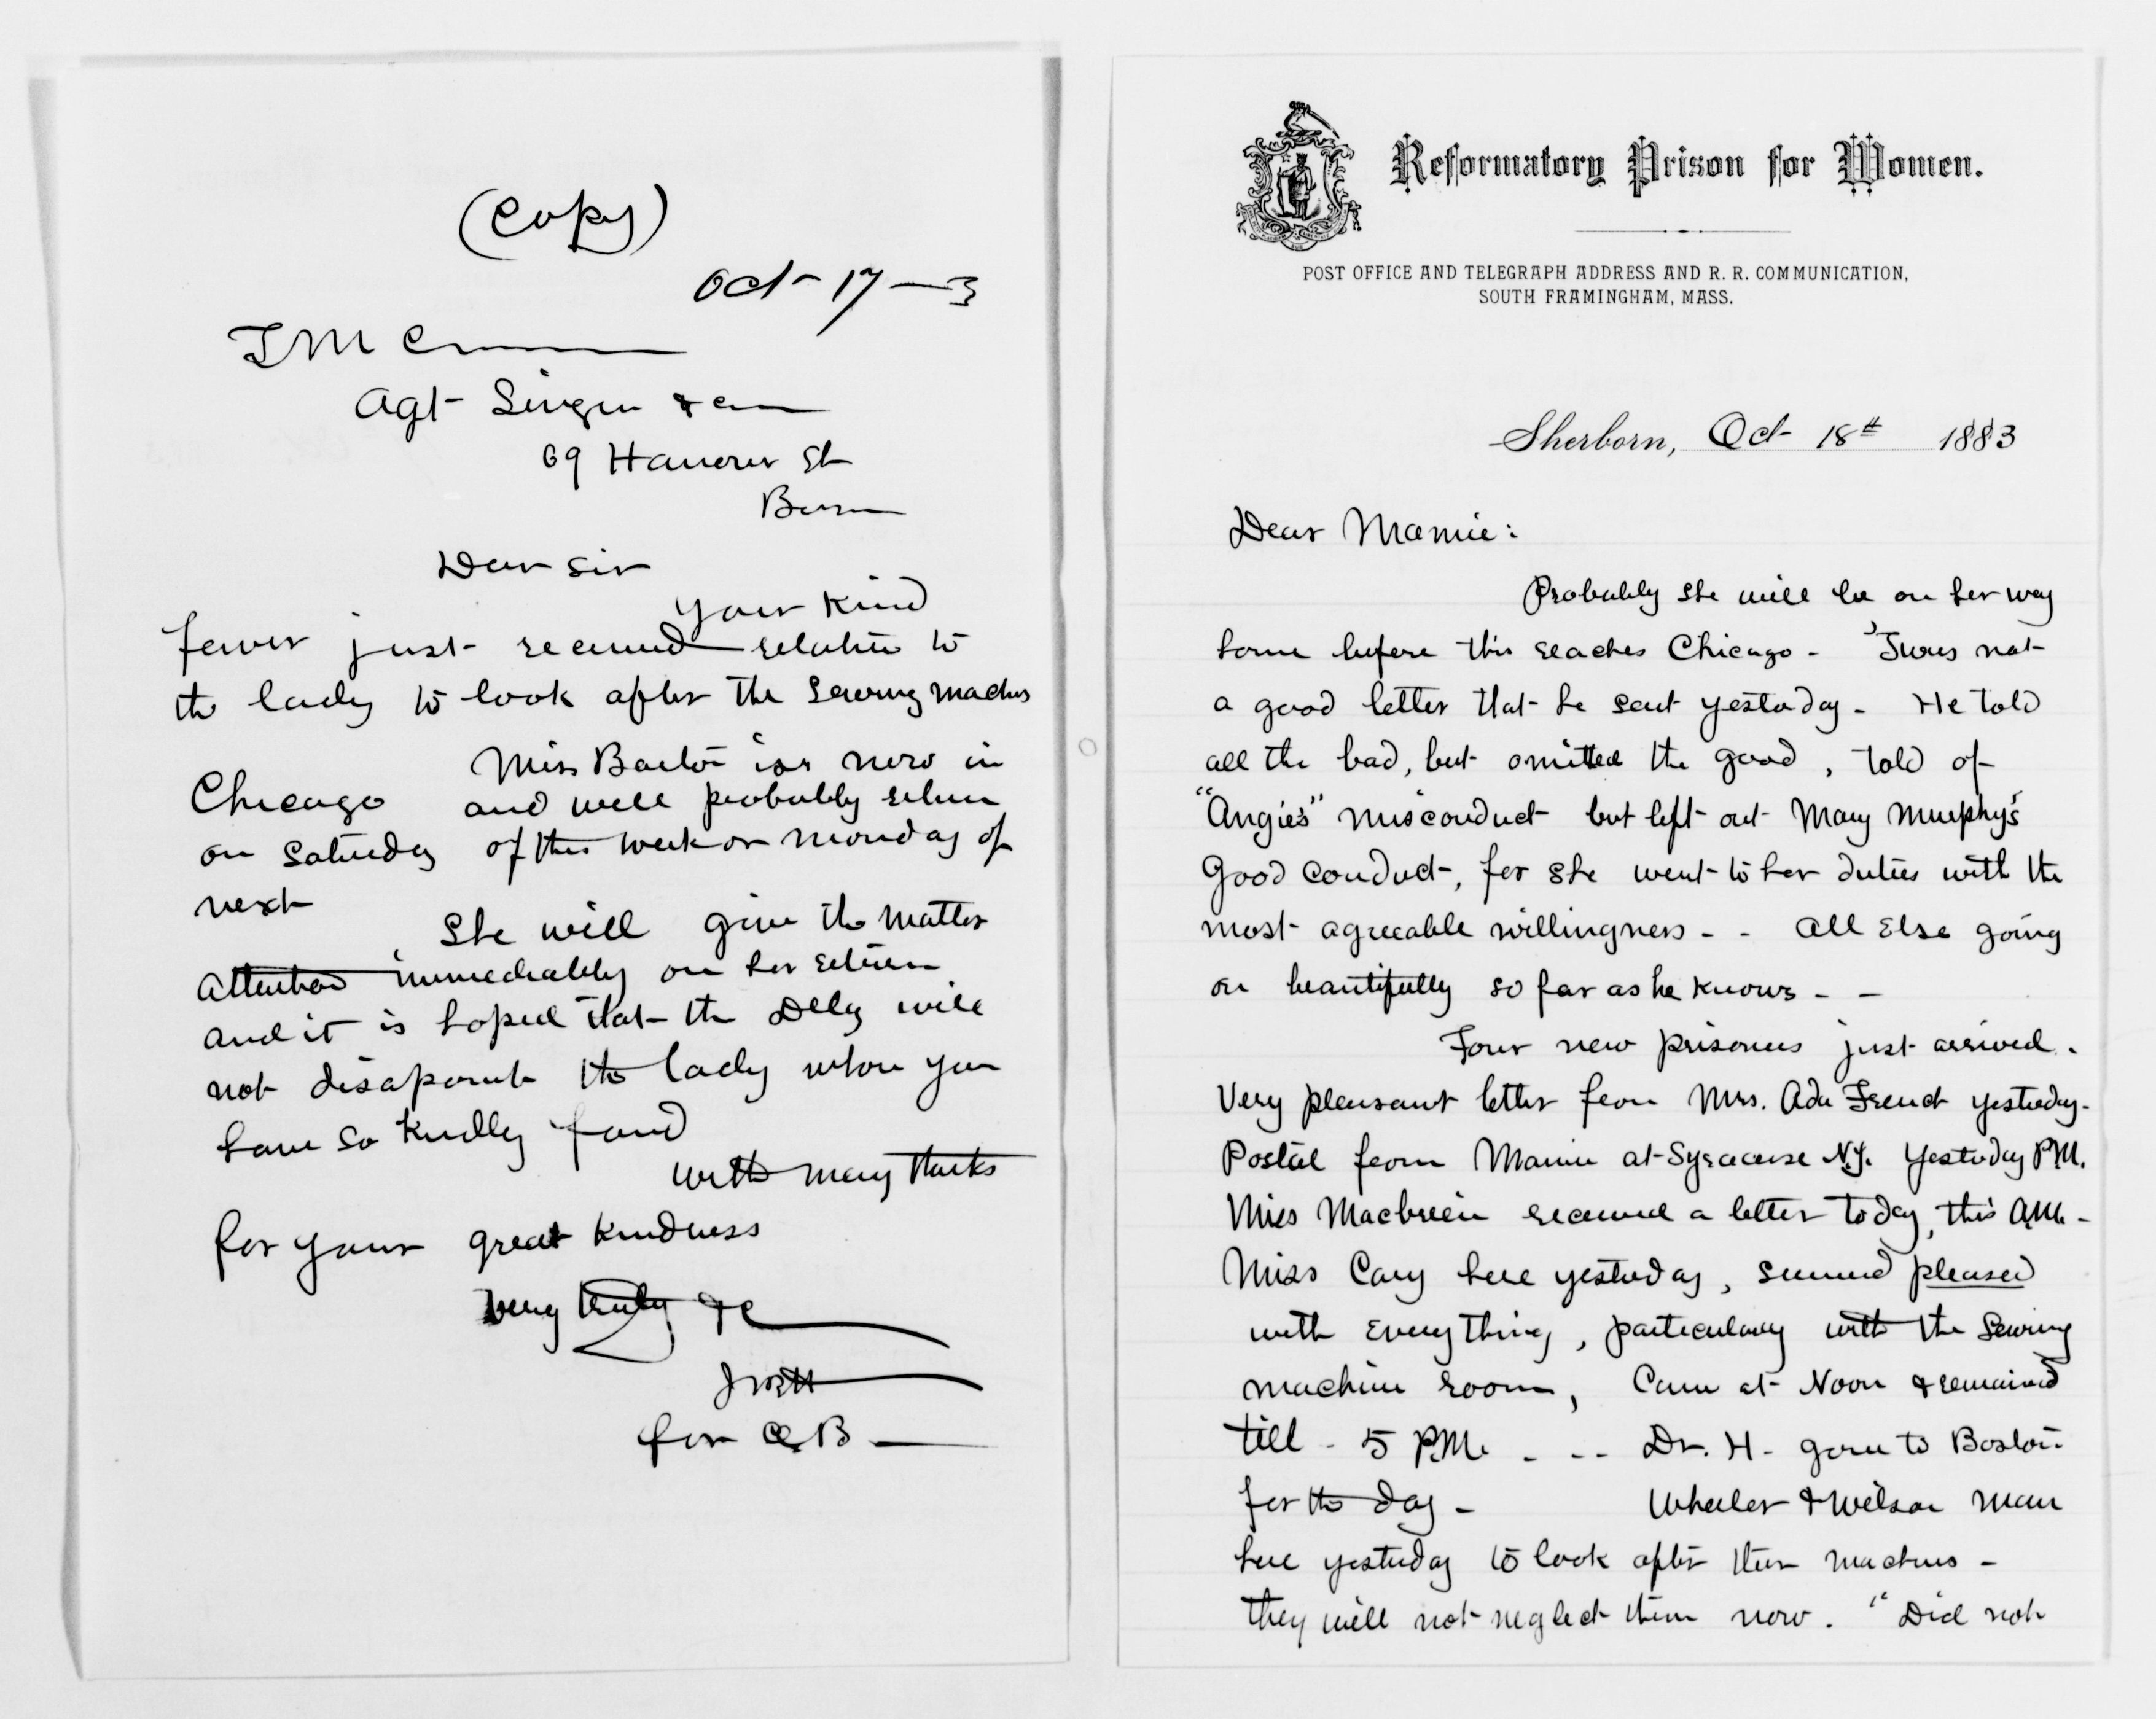 (Copy)
Oct - 17 — 3
Agt - Singer &
69 Hanover St
Dear Sir
Your kind
favor just received relative to
the lady to look after the Sewing machines
Miss Barton is now in
Chicago and will probably return
on Saturday of this week or Monday of
next
She will give the matter
attention immediately on her return
and it is hoped that the delay will
not disapoint the lady whom you
have so kindly found
with many thanks
for your great kindness
Very truly &c
for CB —
Reformatory Prison for Women.
POST OFFICE AND TELEGRAPH ADDRESS AND R. R. COMMUNICATION,
SOUTH FRAMINGHAM, MASS.
Sherborn, Oct 18th 1883
Dear Mamie:
Probably she will be on her way
home before this reaches Chicago - 'Twas not
a good letter that he sent yesterday - He told
all the bad, but omitted the good, told of
"Angie's" misconduct but left out Mary Murphy's
Good conduct, for she went to her duties with the
most agreeable willingness - - All Else going
on beautifully so far as he knows - -
Four new prisoners just arrived.
Very pleasant letter from Mrs. Ada French yesterday -
Postal from Mamie at Syracuse N.Y. Yesterday P.M.
Miss received a letter today, this A.M. -
Miss Cary here yesterday, seemed pleased
with Everything, particularly with the Sewing
machine room, Came at Noon & remained
till - 5 P.M. - - - Dr. H - gone to Boston
for the day - Wheeler & Wilson man
here yesterday to look after their machines -
they will not neglect them now. "Did not